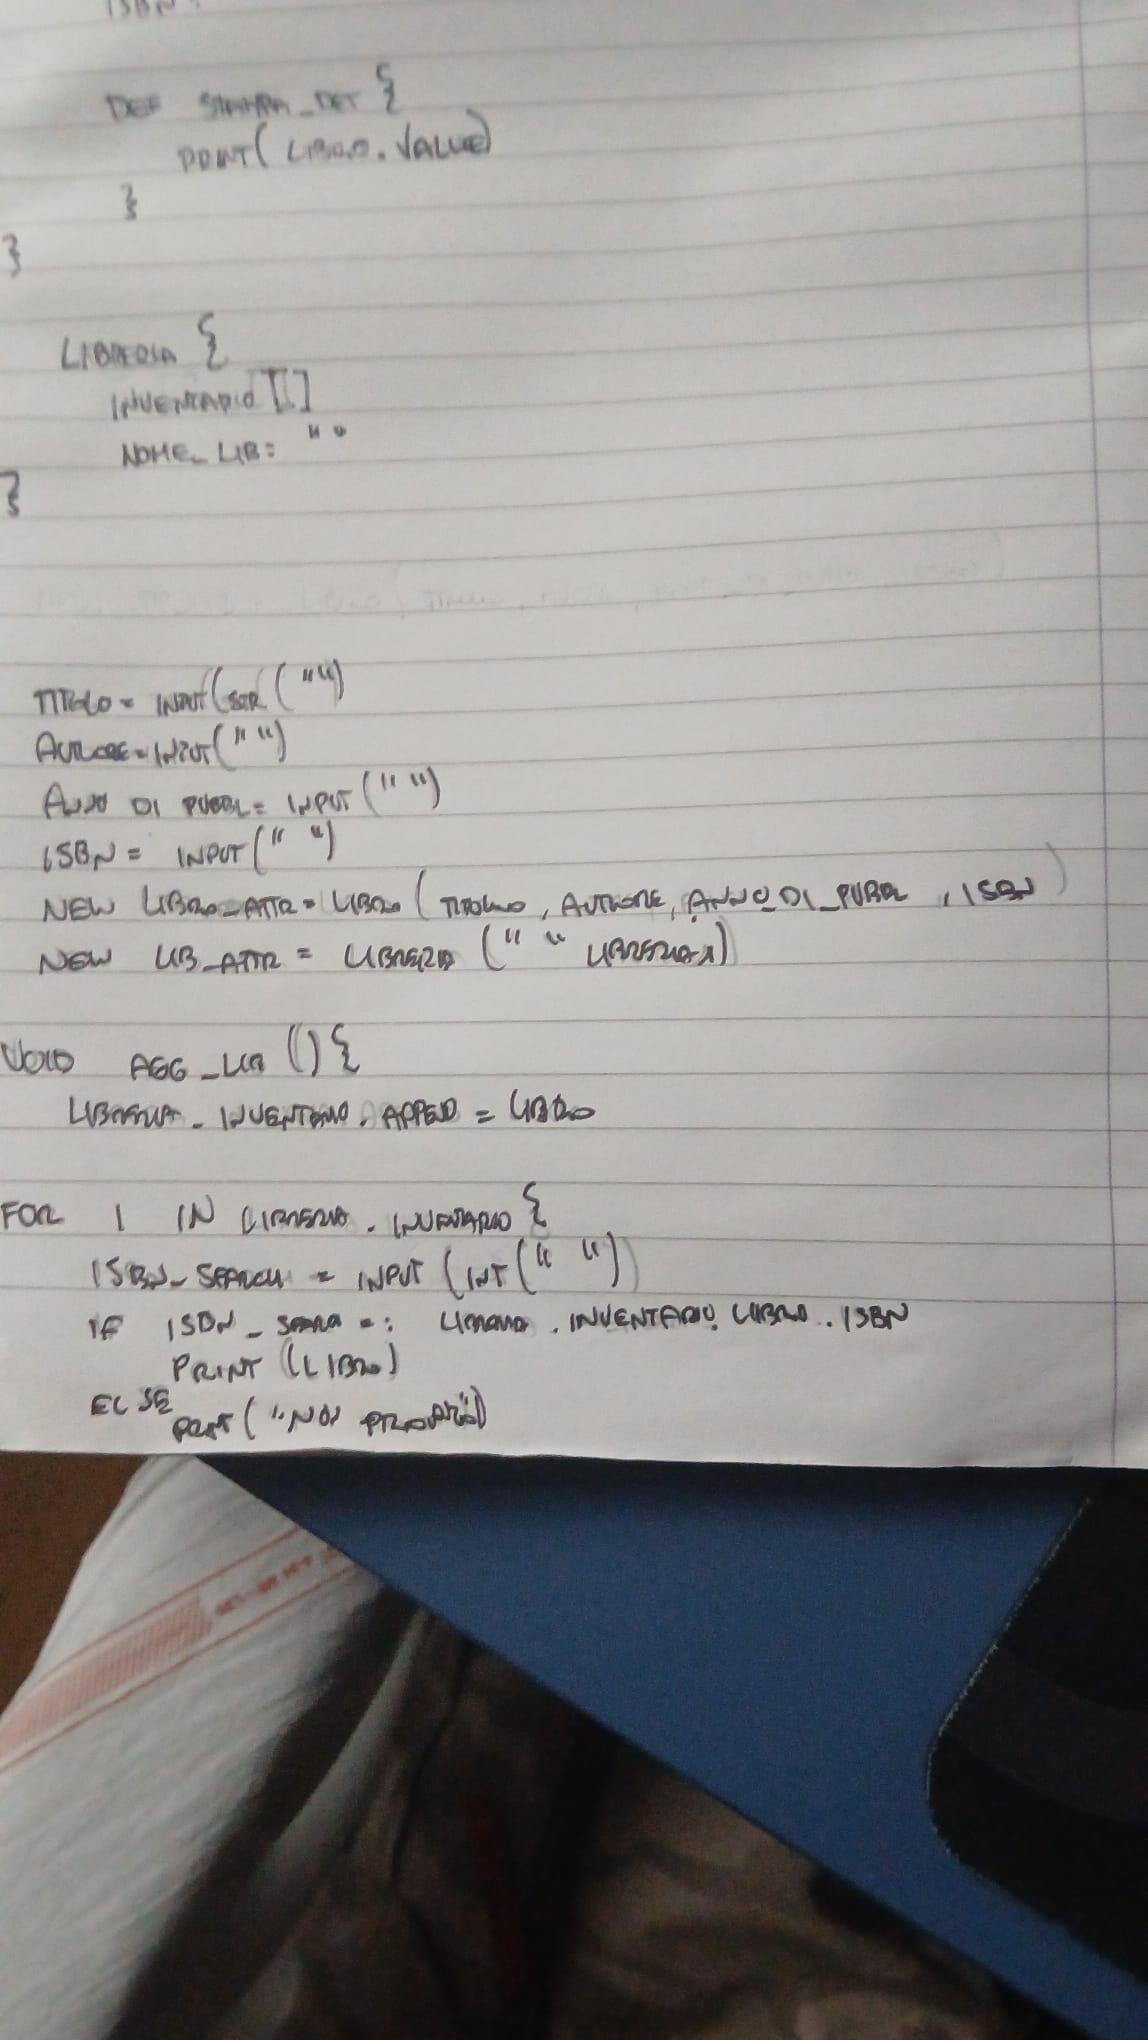 ISBN:
DEF STAMPA_DET {
PRINT( LIBRO.VALUE)
}
}
LIBRERIA {
INVENTARIO []
NOME_LIB: " "
}
TITOLO = INPUT(STR("")
AUTORE = INPUT(" ")
ANNO DI PUBBL= INPUT(" ")
ISBN = INPUT(" ")
NEW LIBRO_ATTR = LIBRO ( TITOLO, AUTORE, ANNO_DI_PUBBL, ISBN )
NEW LIB_ATTR = LIBRERIA (" " LIBRERIA)
VOID AGG_LIB () {
LIBRERIA_INVENTARIO.APPED = LIBRO
FOR I IN LIBRERIA.INVENTARIO {
ISBN_SEARCH = INPUT (INT(" ")
IF ISBN_ =: . INVENTARIO. LIBRO.ISBN
PRINT (LIBRO)
ELSE
("NON